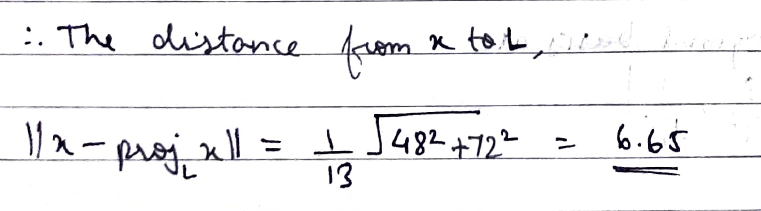 ∴ The distance from x to L,
||x - proj_L x|| = 1/13 √(48² + 72²) = 6.65